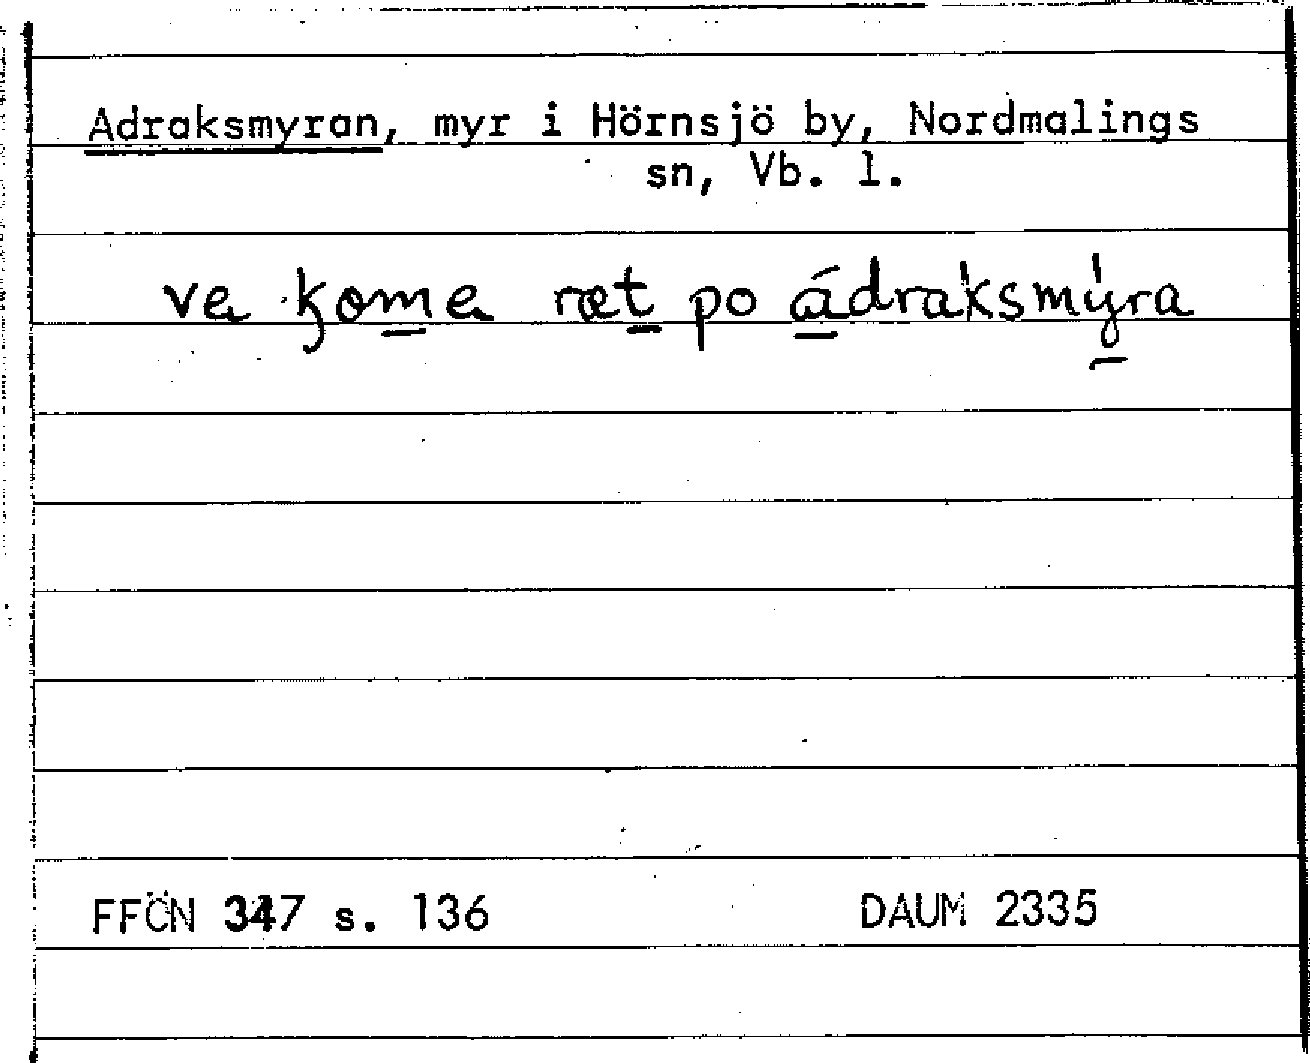 Adraksmyran, myr i Hörnsjö by, Nordmalings
sn, Vb. l.
va ꞣom̲a ræt̲ po á̲draksmý̲ra
FFÖN 347 s. 136 DAUM 2335